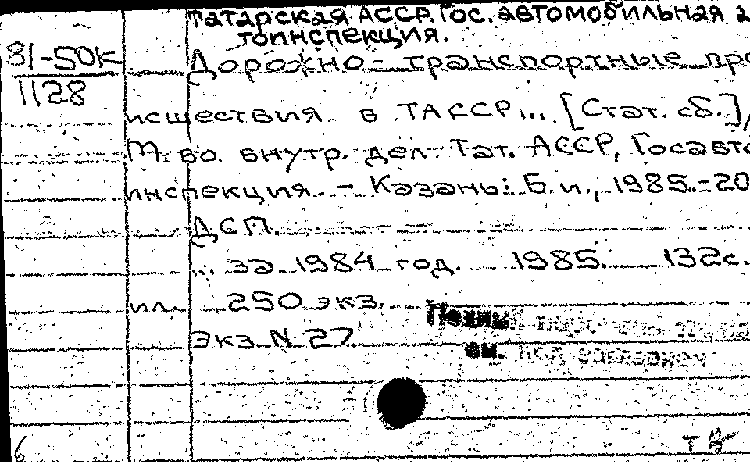 Татарская АССР. Гос. автомобильная
топнспекция.
81-50к
1128
Дорожно-транспортные про
исшествия в ТАССР... [Стат. сб.],
М-во. внутр. дел Тат. АССР, Госавто
инспекция. - Казань: Б. и., 1985.-20
ДСП.
... за 1984 год. 1985. 132с.
ил. 250 экз.
Экз. N 27.